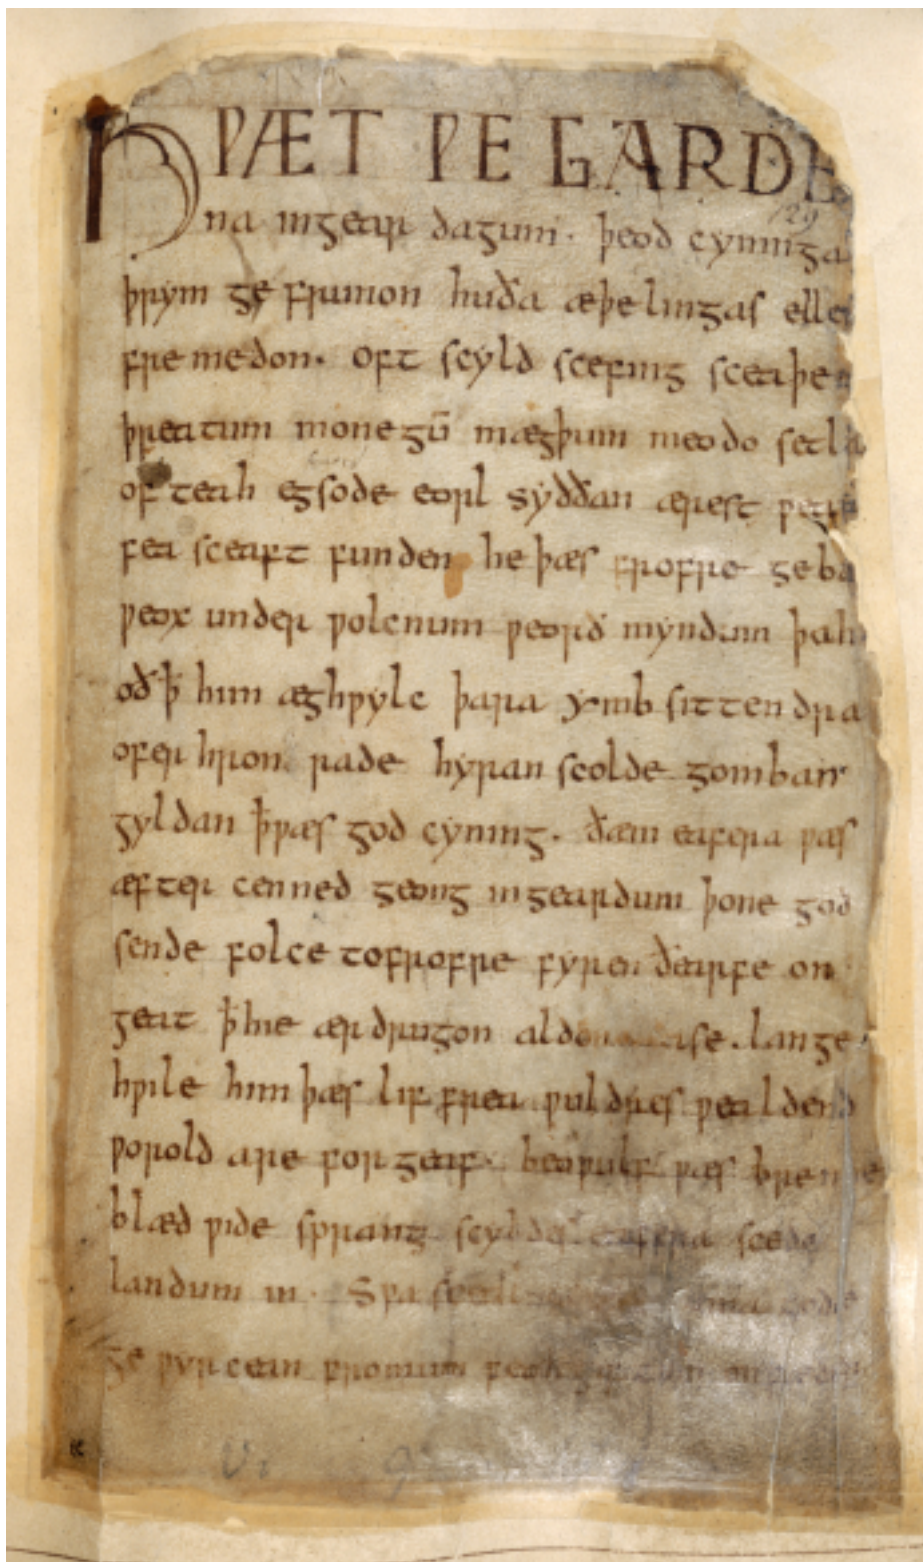 HǷÆT ǷE GARDE
na ingear dagum. þeod cyninga
þrym ge frunon huða æþelingas elle
fre medon. oft scyld scefing sceaþe
þreatum monegū mægþum meodo setla
of teah egsode eorl syððan ærest ƿear
fea sceaft funden he þæs frofre geba
ƿeox under ƿolcnum ƿeorð myndum þah
oð ꝥ him æghƿylc þara ymb sittendra
ofer hron rade hyran scolde gomban
gyldan ꝥƿæs god cyning. ðæm eafera ƿæs
æfter cenned geong ingeardum þone god
sende folce tofrofre fyren ðearfe on
geat ꝥhie ær drugon aldor ase. lange
hƿile him þæs lif frea ƿuldres ƿealdend
ƿorold are for geaf. beoƿulf ƿæs breme
blæd ƿide sprang scyldes eafera scede
landum in. Sƿa sceal guma gode
ge ƿyrcean fromum feoh giftum
129